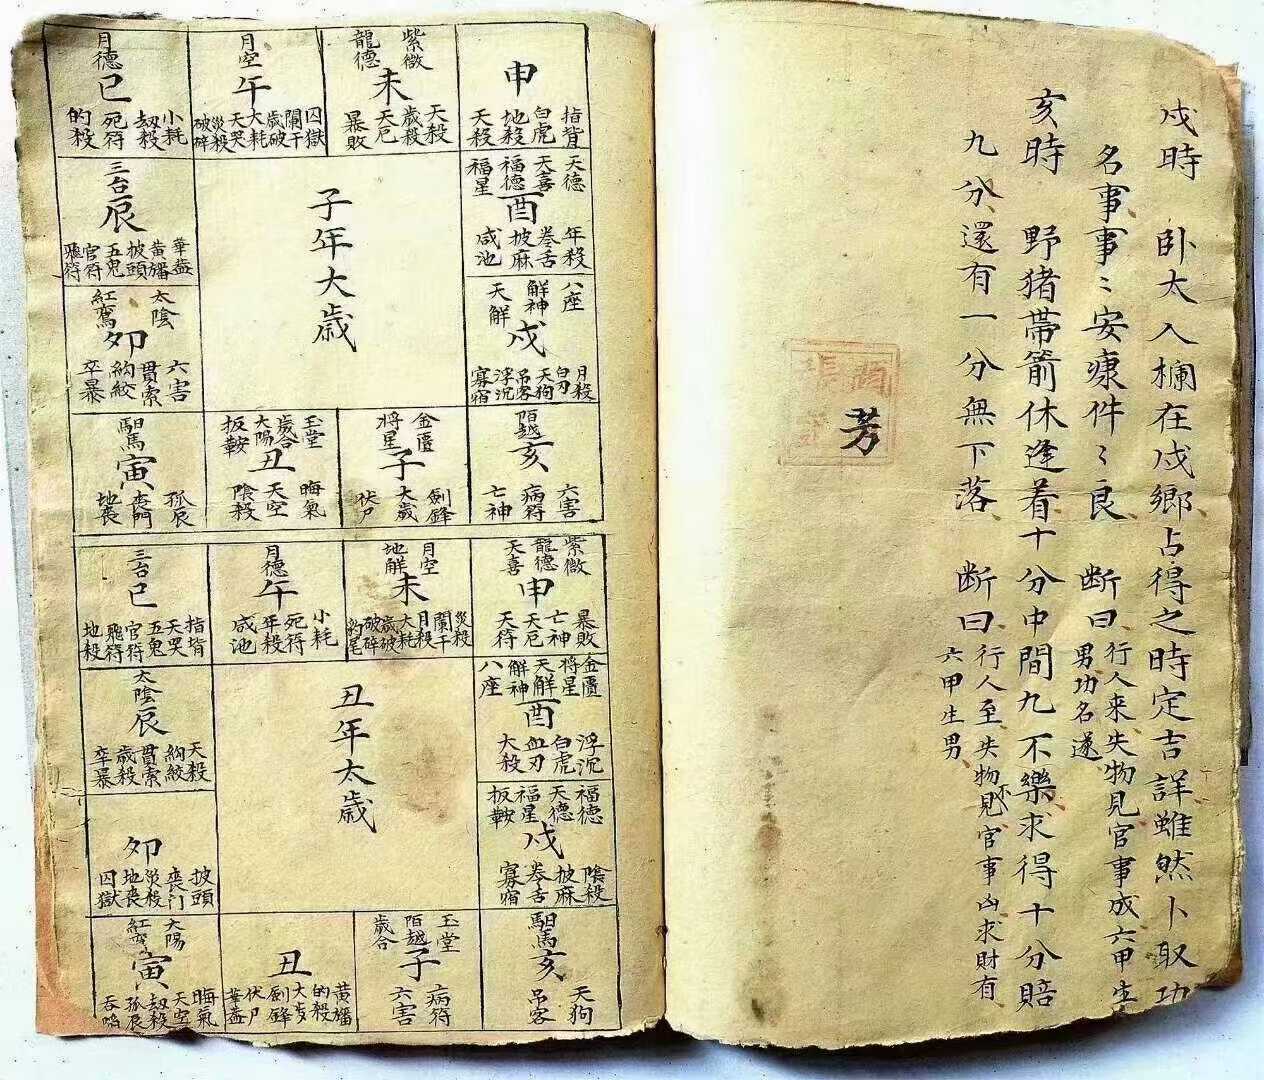 戌時　卧太入欄在戌鄉占得之時定吉詳雖然卜取功
名事事〻安康件〻良　断曰　行人來失物見官事成六甲生
男功名遂
亥時　野猪帶箭休逢着十分中間九不樂求得十分賠
九分還有一分無下落　断曰　行人至失物不見官事凶求財有
六甲生男
芳
月德
巳
小耗 劫殺 死符 的殺
月空
午
囚獄 闌干 歲破 大耗 天哭 災殺 破碎
紫微 龍德
未
天殺 歲殺 天厄 暴敗
申
指背 白虎 地殺 天殺
三台
辰
華蓋 黄旛 披頭 五鬼 官符 飛符
子年大歲
天德 天喜 福德 福星
酉
年殺 卷舌 披麻 咸池
太陰 紅鸞
卯
六害 貫索 絞 卒暴
八座 解神 天解
戌
月殺 白刃 天狗 吊客 浮沉 寡宿
馹馬
寅
孤辰 喪門 地喪
玉堂 歲合 太陽 扳鞍
丑
晦氣 天空 陰殺
金匱 將星
子
劍鋒 大歲 伏尸
陌越
亥
六害 病符 亡神
三台
巳
指背 天哭 五鬼 官符 飛符 地殺
月德
午
小耗 死符 年殺 咸池
月空 地解
未
災殺 闌干 月殺 大耗 歲破 破碎 豹尾
紫微 龍德 天喜
申
暴敗 亡神 天厄 天符
太陰
辰
天殺 絞 貫索 歲殺 卒暴
丑年太歲
金匱 將星 天解 解神 八座
酉
浮沉 白虎 血刃 大殺
卯
披頭 喪门 災殺 地喪 囚獄
福德 天德 福星 扳鞍
戌
陰殺 披麻 卷舌 寡宿
太陽 紅鸞
寅
晦氣 天空 劫殺 孤辰 吞啗
丑
黄旛 的殺 大歲 劍鋒 伏尸 華蓋
玉堂 陌越 歲合
子
病符 六害
馹馬
亥
天狗 吊客